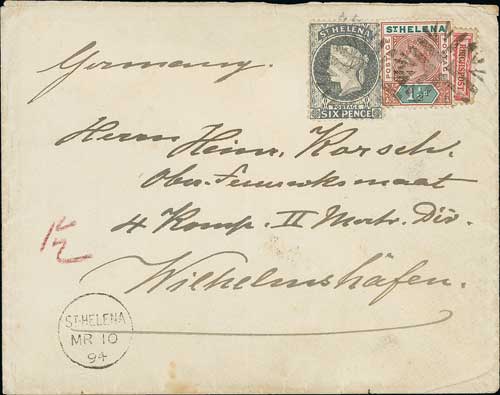 ST HELENA
POSTAGE
SIX PENCE
ST HELENA
POSTAGE
1½d
REICHSPOST
Germany.
Herrn Heinr. Korsch.
Ober-Feuerwksmaat
4 Komp. II Matr. Div.
Wilhelmshäfen.
ST. HELENA
MR 10
94